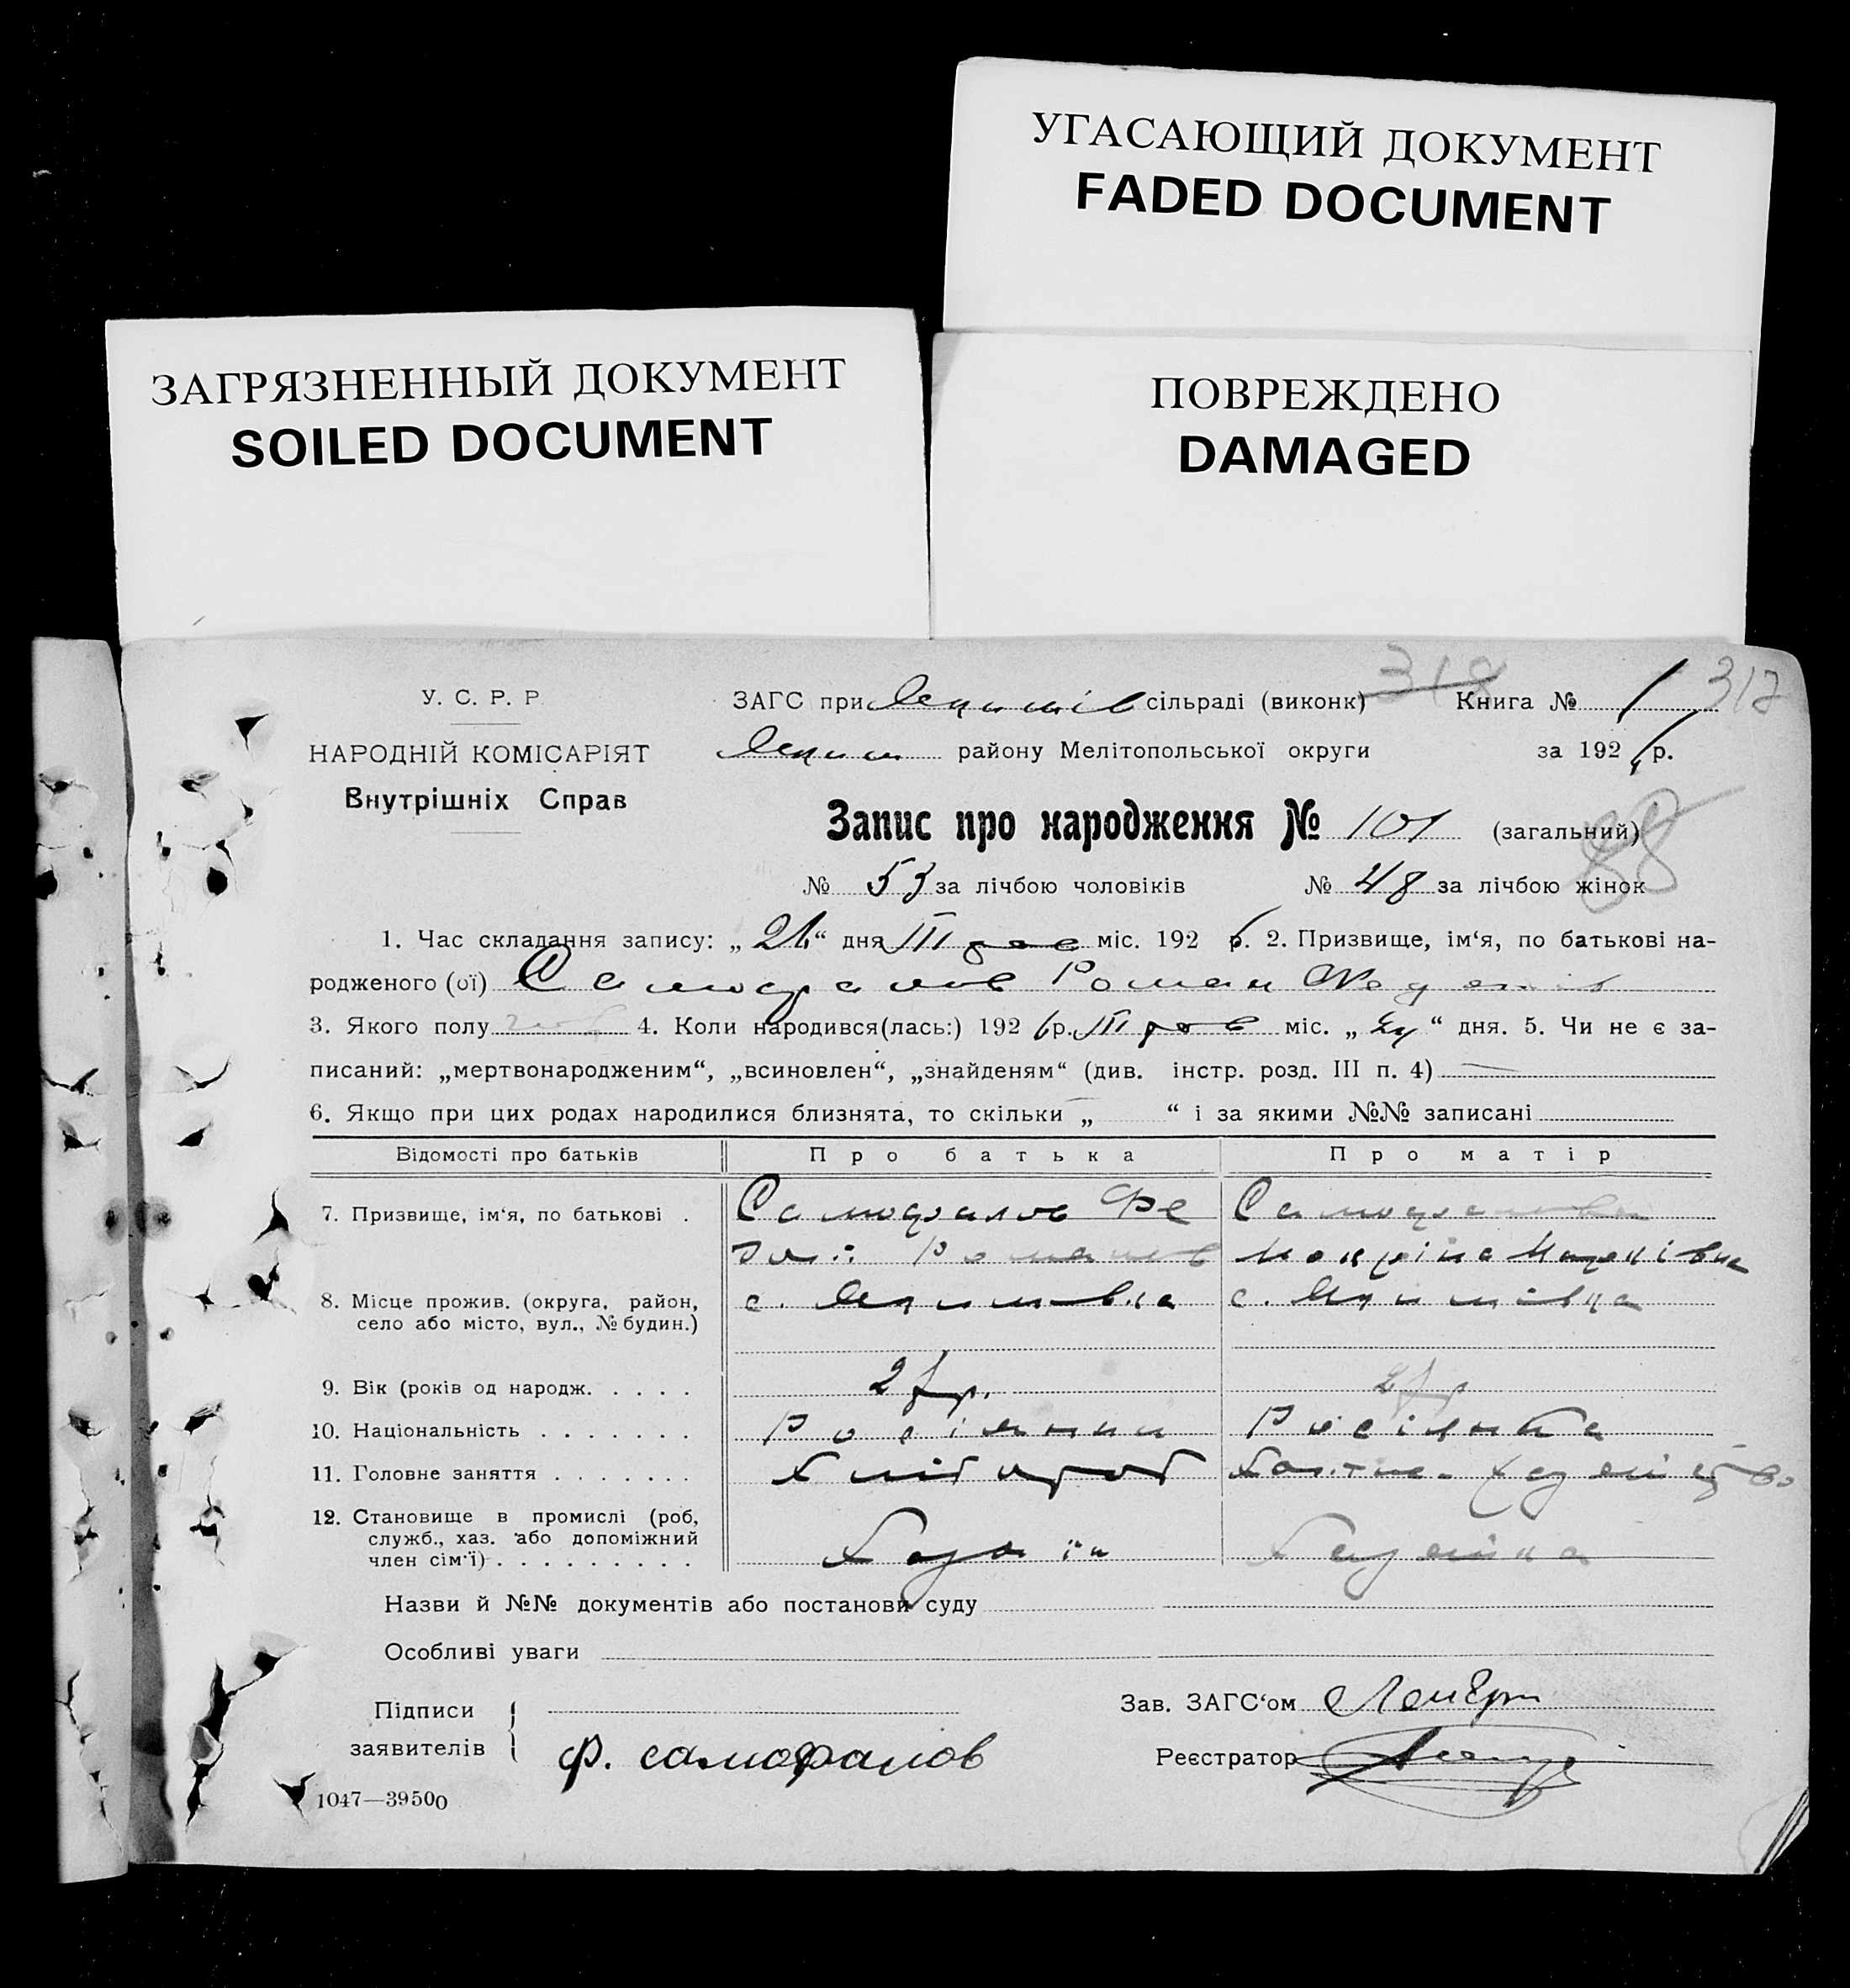 УГАСАЮЩИЙ ДОКУМЕНТ
FADED DOCUMENT
ЗАГРЯЗНЕННЫЙ ДОКУМЕНТ
SOILED DOCUMENT
ПОВРЕЖДЕНО
DAMAGED
У. С. Р. Р. ЗАГС при сільраді (виконк) 318 Книга № 1 317
НАРОДНІЙ КОМІСАРІЯТ району Мелітопольської округи за 192 р.
Внутрішніх Справ
Запис про народження № 101 (загальний) 88
№ 53 за лічбою чоловіків № 48 за лічбою жінок
1. Час складання запису: „ “ дня III міс. 192 р. 2. Призвище, ім‘я, по батькові на-
родженого (ої) Самофалов Роман
3. Якого полу 4. Коли народився(лась:) 192 р. III міс. „ “ дня. 5. Чи не є за-
писаний: „мертвонародженим“, „всиновлен“, „знайденям“ (див. інстр. розд. III п. 4)
6. Якщо при цих родах народилися близнята, то скільки „ “ і за якими №№ записані
Відомості про батьків Про батька Про матір
7. Призвище, ім‘я, по батькові . Самофалов Фе Самофалова
Романов Мокріна
8. Місце прожив. (округа, район, с. с.
село або місто, вул., № будин.)
9. Вік (років од народж. . . . .
10. Національність . . . . . . . Росіянин Росіянка
11. Головне заняття . . . . . . . Хлібороб
12. Становище в промислі (роб,
служб., хаз. або допоміжний
член сім‘ї) . . . . . . . . . Хазяїн Хазяйка
Назви й №№ документів або постанови суду
Особливі уваги
Підписи Зав. ЗАГС‘ом
заявителів Ф. самофалов Реєстратор
1047—39500